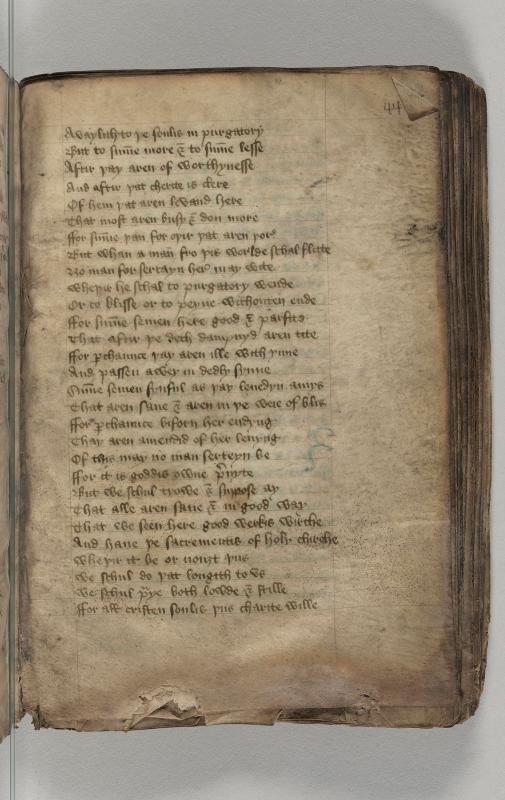 44
Avaylith to þe soulis in purgatory
But to su̅me more & to su̅me lesse
Aftir þay aren of worthynesse
And aftir þat cherite is clere
Of hem þat aren levand here
That most aren busy & don more
ffor su̅me þan for oþir þat aren pore
But whan a man fro þis worlde schal flitte
No man for sertayn here may wite
Wheþir he schal to purgatory wende
Or to blisse or to peyne withouten ende
ffor su̅me semen here good & parfite
That aftir þe deth dampnyd aren tite
ffor pchaunce þay aren ille with ynne
And passen awey in dedly synne
Su̅me semen synful as þay levedyn amys
That aren save & aren in þe weie of blis
ffor pchaunce biforn her endyng
Thay aren amendid of her levyng
Of this may no man serteyn be
ffor it is goddis owne pivyte
But we schul trowe & supose ay
That alle aren save & in good way
That we seen here good werkis wirche
And have þe sacrementis of holy chirche
Wheþir it be or nouȝt þus
We schul do þat longith to vs
We schul pye both lowde & stille
ffor all cristen soulis þus charite wille